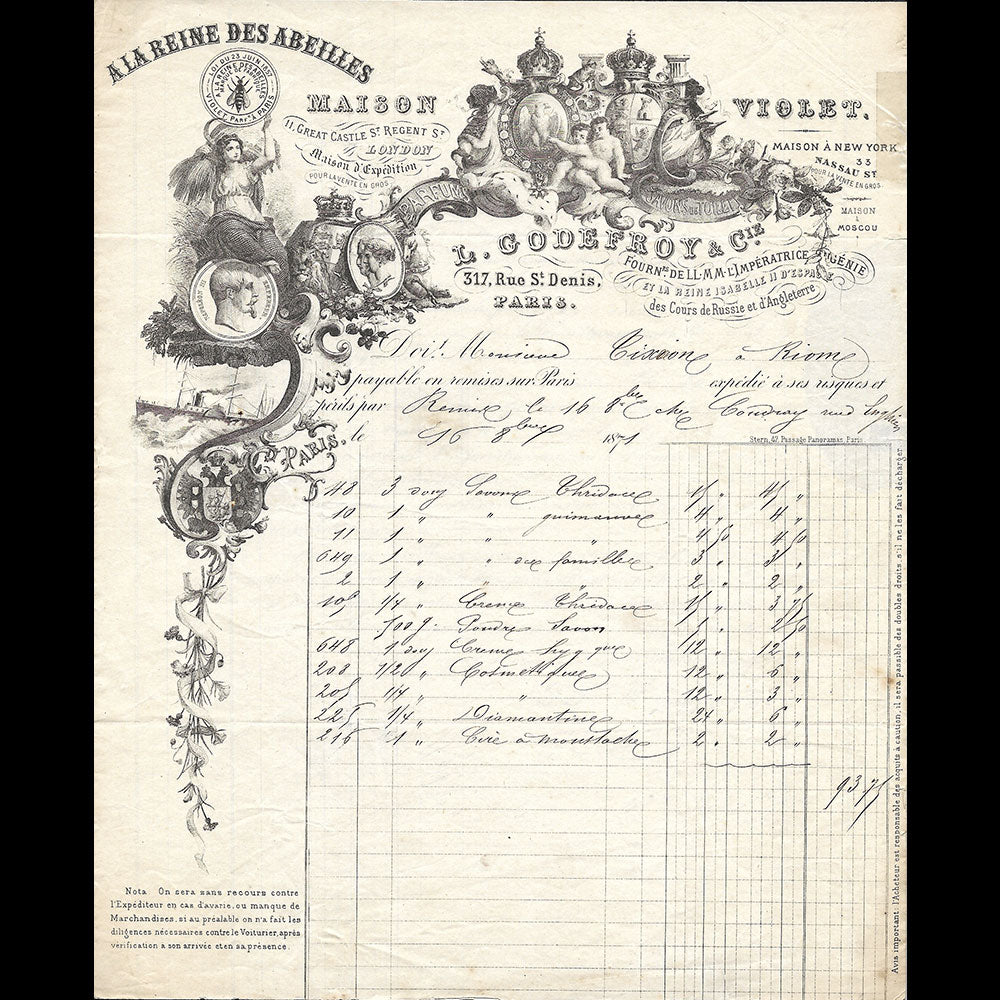 A LA REINE DES ABEILLES
LOI DU 23 JUIN 1857
A LA REINE DES ABEILLES
VIOLET, PARFR A PARIS
MAISON VIOLET.
11, GREAT CASTLE ST REGENT ST
LONDON
Maison d'Expédition
POUR LA VENTE EN GROS
MAISON À NEW YORK
33
NASSAU ST
POUR LA VENTE EN GROS.
MAISON
à
MOSCOU
PARFUMS
SAVONS DE TOILETTE
NAPOLEON III EMPEREUR
L. GODEFROY & CIE
317, Rue St Denis,
PARIS.
FOURNRS DE LL.MM. L'IMPÉRATRICE EUGÉNIE
ET LA REINE ISABELLE II D'ESPAGNE
des Cours de Russie et d'Angleterre
Doit Monsieur Tixeion à Riom
payable en remises sur Paris expédié à ses risques et
périls par Remise le 16 8bre chez Coudray rue Enghien
PARIS, le 16 8bre 1871
Stern, 47, Passage Panoramas, Paris
48 3 douz Savons Thridace 15 " 45 "
10 1 " " guimauve 4 " 4 "
11 1 " " " 4 50 4 50
649 1 " " des familles 3 " 3 "
2 1 " " " 2 " 2 "
105 1/4 " Creme Thridace 15 " 3 75
500 g. Poudre Savon 2 50
648 1 douz Creme hygque 12 " 12 "
208 1/2 " Cosmetiques 12 " 6 "
205 1/4 " " 12 " 3 "
225 1/4 " Diamantine 24 " 6 "
216 1 " Cire à moustache 2 " 2 "
93 75
Nota On sera sans recours contre
l'Expéditeur en cas d'avarie, ou manque de
Marchandises, si au préalable on n'a fait les
diligences nécessaires contre le Voiturier, après
vérification à son arrivée et en sa présence.
Avis important: l'Acheteur est responsable des acquits à caution, il sera passible des doubles droits, s'il ne les fait décharger.